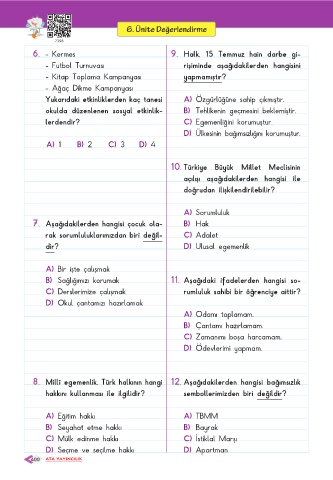 6. Ünite Değerlendirme
6. - Kermes
- Futbol Turnuvası
- Kitap Toplama Kampanyası
- Ağaç Dikme Kampanyası
Yukarıdaki etkinliklerden kaç tanesi
okulda düzenlenen sosyal etkinlik-
lerdendir?
A) 1 B) 2 C) 3 D) 4
7. Aşağıdakilerden hangisi çocuk ola-
rak sorumluluklarımızdan biri değil-
dir?
A) Bir işte çalışmak
B) Sağlığımızı korumak
C) Derslerimize çalışmak
D) Okul çantamızı hazırlamak
8. Millî egemenlik, Türk halkının hangi
hakkını kullanması ile ilgilidir?
A) Eğitim hakkı
B) Seyahat etme hakkı
C) Mülk edinme hakkı
D) Seçme ve seçilme hakkı
9. Halk, 15 Temmuz hain darbe gi-
rişiminde aşağıdakilerden hangisini
yapmamıştır?
A) Özgürlüğüne sahip çıkmıştır.
B) Tehlikenin geçmesini beklemiştir.
C) Egemenliğini korumuştur.
D) Ülkesinin bağımsızlığını korumuştur.
10. Türkiye Büyük Millet Meclisinin
açılışı aşağıdakilerden hangisi ile
doğrudan ilişkilendirilebilir?
A) Sorumluluk
B) Hak
C) Adalet
D) Ulusal egemenlik
11. Aşağıdaki ifadelerden hangisi so-
rumluluk sahibi bir öğrenciye aittir?
A) Odamı toplamam.
B) Çantamı hazırlamam.
C) Zamanımı boşa harcamam.
D) Ödevlerimi yapmam.
12. Aşağıdakilerden hangisi bağımsızlık
sembollerimizden biri değildir?
A) TBMM
B) Bayrak
C) İstiklal Marşı
D) Apartman
400 ATA YAYINCILIK